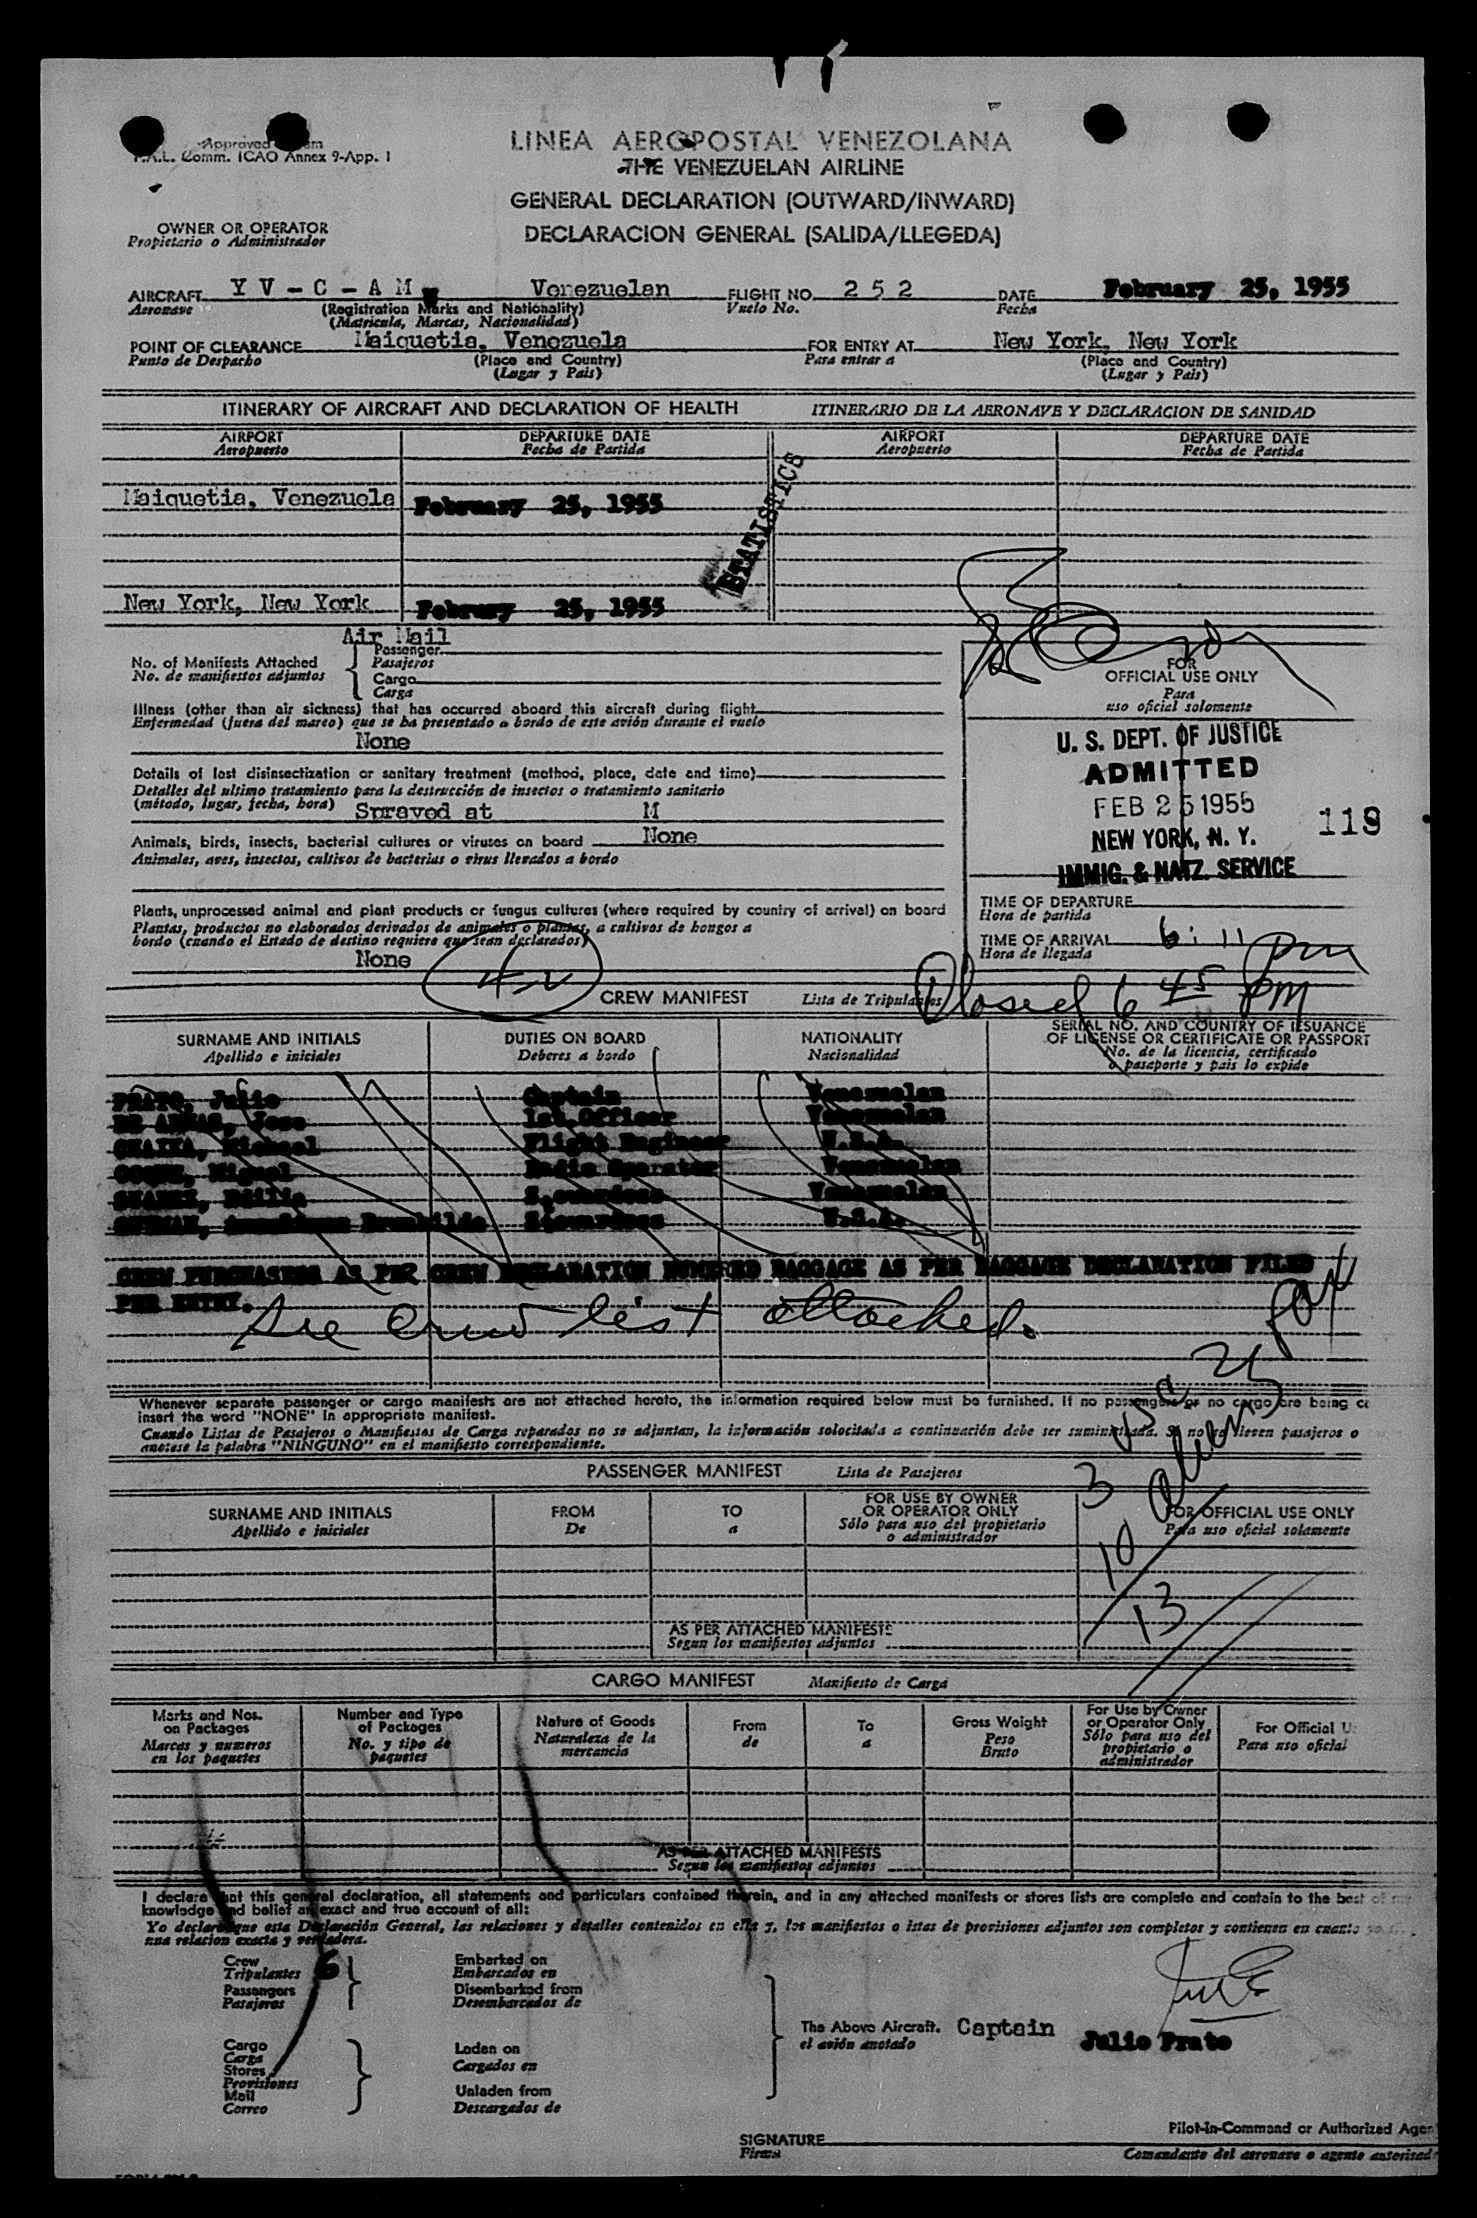 Approved
F.A.L. Comm. ICAO Annex 9-App. 1
LINEA AEROPOSTAL VENEZOLANA
THE VENEZUELAN AIRLINE
GENERAL DECLARATION (OUTWARD/INWARD)
DECLARACION GENERAL (SALIDA/LLEGEDA)
OWNER OR OPERATOR
Propietario o Administrador
AIRCRAFT Y V - C - A M Venezuelan FLIGHT NO. 2 5 2 DATE February 25, 1955
Aeronave (Registration Marks and Nationality) Vuelo No. Fecha
(Matricula, Marcas, Nacionalidad)
POINT OF CLEARANCE Maiquetia, Venezuela FOR ENTRY AT New York, New York
Punto de Despacho (Place and Country) Para entrar a (Place and Country)
(Lugar y Pais) (Lugar y Pais)
ITINERARY OF AIRCRAFT AND DECLARATION OF HEALTH ITINERARIO DE LA AERONAVE Y DECLARACION DE SANIDAD
AIRPORT DEPARTURE DATE AIRPORT DEPARTURE DATE
Aeropuerto Fecha de Partida Aeropuerto Fecha de Partida
Maiquetia, Venezuela February 25, 1955
STATISTICS
New York, New York Februry 25, 1955
Air Mail
No. of Manifests Attached Passenger
No. de manifiestos adjuntos Pasajeros
Cargo
Carga
Illness (other than air sickness) that has occurred aboard this aircraft during flight
Enfermedad (fuera del mareo) que se ha presentado a bordo de este avión durante el vuelo
None
Details of last disinsectization or sanitary treatment (method, place, date and time)
Detalles del ultimo tratamiento para la destrucción de insectos o tratamiento sanitario
(método, lugar, fecha, hora) Sprayed at M
Animals, birds, insects, bacterial cultures or viruses on board None
Animales, aves, insectos, cultivos de bacterias o virus llevados a bordo
Plants, unprocessed animal and plant products or fungus cultures (where required by country of arrival) on board
Plantas, productos no elaborados derivados de animales o plantas, a cultivos de hongos a
bordo (cuando el Estado de destino requiere que sean declarados)
None
FOR
OFFICIAL USE ONLY
Para
uso oficial solomente
U. S. DEPT. OF JUSTICE
ADMITTED
FEB 25 1955
NEW YORK, N. Y.
IMMIG. & NATZ. SERVICE
119
TIME OF DEPARTURE
Hora de partida
TIME OF ARRIVAL 6:11 pm
Hora de llegada
Closed 6 45 PM
CREW MANIFEST Lista de Tripulantes
SURNAME AND INITIALS DUTIES ON BOARD NATIONALITY SERIAL NO. AND COUNTRY OF ISSUANCE
Apellido e iniciales Deberes a bordo Nacionalidad OF LICENSE OR CERTIFICATE OR PASSPORT
No. de la licencia, certificado
o pasaporte y pais lo expide
PRATO, Julio Captain Venezuelan
DE ARMAS, Jose 1st.Officer Venezuelan
Michael Flight Engineer U.S.A.
Miguel Radio Operator Venezuelan
Stewardess Venezuelan
Brunhilde Stewardess U.S.A.
CREW PURCHASINGS AS PER CREW DECLARATION NUMBERED BAGGAGE AS PER BAGGAGE DECLARATION FILED
PER ENTRY.
See Crew list attached.
Whenever separate passenger or cargo manifests are not attached hereto, the information required below must be furnished. If no passengers or no cargo are being
insert the word "NONE" in appropriate manifest.
Cuando Listas de Pasajeros o Manifiestos de Carga separados no se adjuntan, la información solocitada a continuación debe ser suministrada. Si no se lleven pasajeros o
anotese la palabra "NINGUNO" en el manifiesto correspondiente.
PASSENGER MANIFEST Lista de Pasajeros
3 USC
10 aliens
13
SURNAME AND INITIALS FROM TO FOR USE BY OWNER FOR OFFICIAL USE ONLY
Apellido e iniciales De a OR OPERATOR ONLY Para uso oficial solamente
Sólo para uso del propietario
o administrador
AS PER ATTACHED MANIFESTS
Segun los manifiestos adjuntos
CARGO MANIFEST Manifiesto de Carga
Marks and Nos. Number and Type Nature of Goods From To Gross Weight For Use by Owner For Official U
on Packages of Packages Naturaleza de la de a Peso or Operator Only Para uso oficial
Marcas y numeros No. y tipo de mercancia Bruto Sólo para uso del
en los paquetes paquetes propietario o
administrador
AS PER ATTACHED MANIFESTS
Segun los manifiestos adjuntos
I declare that this general declaration, all statements and particulars contained therein, and in any attached manifests or stores lists are complete and contain to the best of my
knowledge and belief an exact and true account of all:
Yo declaro que esta Declaración General, las relaciones y detalles contenidos en ella y, los manifiestos o istas de provisiones adjuntos son completos y contienen en cuanto
una relacion exacta y verdadera.
Crew 6 Embarked on
Tripulantes Embarcados en
Passengers Disembarked from
Pasajeros Desembarcados de
The Above Aircraft. Captain Julio Prato
el avión anotado
Cargo Laden on
Carga Cargados en
Stores
Provisiones Unladen from
Mail Descargados de
Correo
Pilot-in-Command or Authorized Agen
SIGNATURE
Firma Comandante del aeronave o agente autorisad